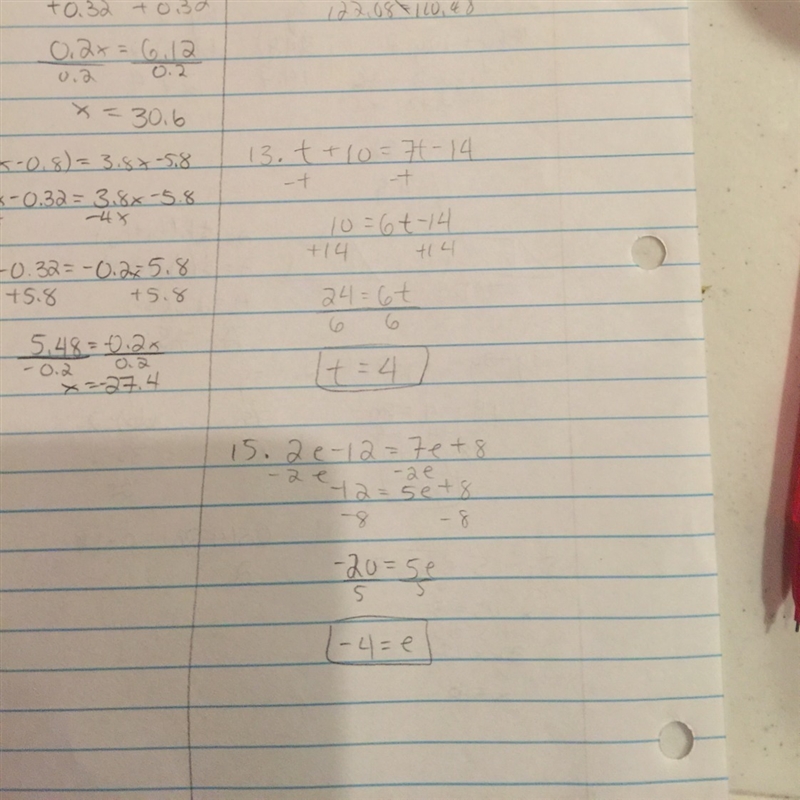 +0.32 +0.32
0.2x = 6.12
0.2 0.2
x = 30.6
x-0.8) = 3.8x-5.8
x-0.32 = 3.8x-5.8
-4x
-0.32 = -0.2x = 5.8
+5.8 +5.8
5.48 = -0.2x
-0.2 0.2
x = -27.4
13. t + 10 = 7t - 14
-t -t
10 = 6t - 14
+14 +14
24 = 6t
6 6
t = 4
15. 2e - 12 = 7e + 8
-2e -2e
-12 = 5e + 8
-8 -8
-20 = 5e
5 5
-4 = e